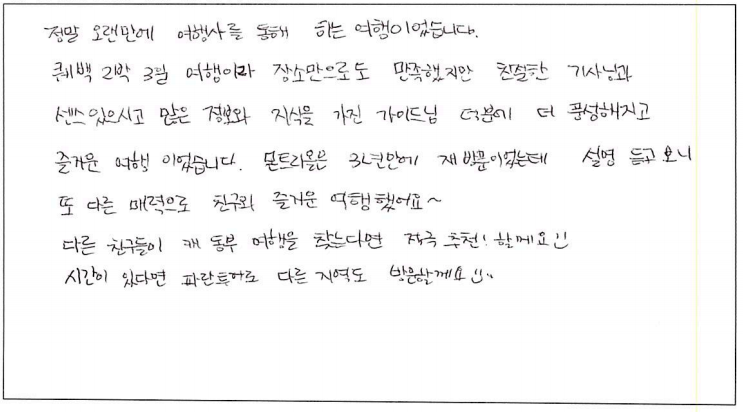 정말 오랜만에 여행사를 통해 하는 여행이었습니다.
퀘백 2박 3일 여행이라 장소만으로도 만족했지만 친절한 기사님과
센스있으시고 많은 정보와 지식을 가진 가이드님 덕분에 더 풍성해지고
즐거운 여행 이었습니다. 몬트리올은 3년만에 재방문이었는데 설명 듣고 보니
또 다른 매력으로 친구와 즐거운 여행했어요~
다른 친구들이 캐 동부 여행을 찾는다면 적극 추천! 할께요!!
시간이 있다면 파란투어로 다른 지역도 방문할께요 !!..